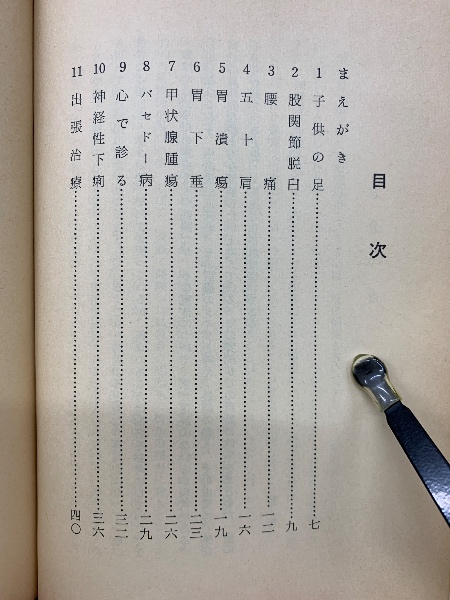 目次
まえがき
1 子供の足……七
2 股関節脱臼……九
3 腰痛……一二
4 五十肩……一六
5 胃潰瘍……一九
6 胃下垂……二三
7 甲状腺腫瘍……二六
8 バセドー病……二九
9 心で診る……三二
10 神経性下痢……三六
11 出張治療……四〇